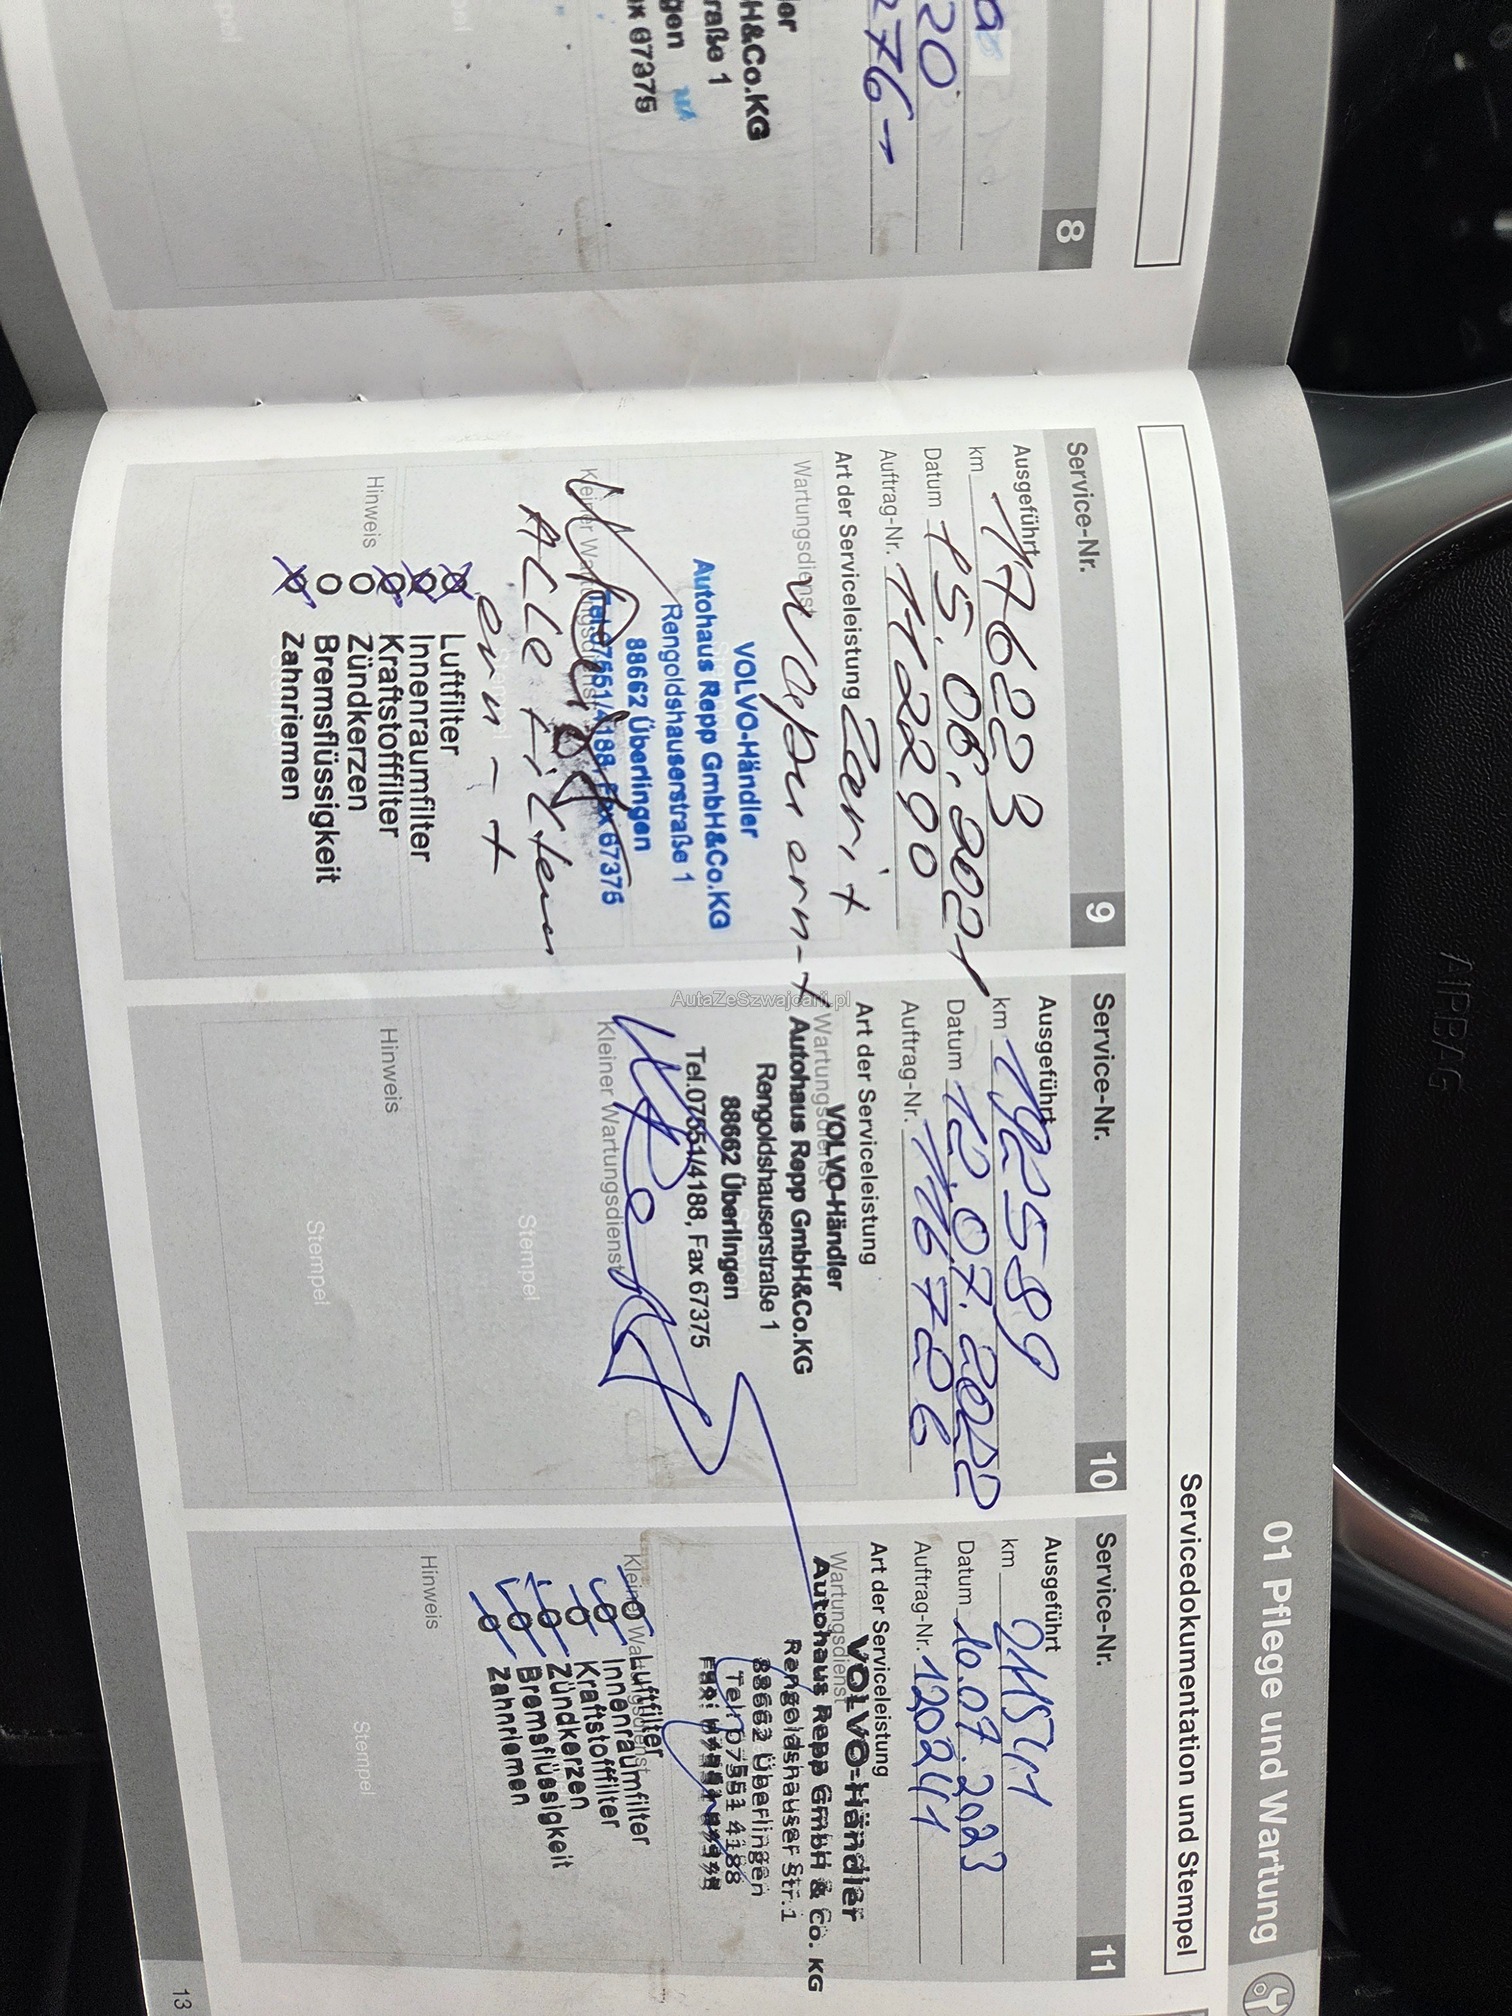 20
276
H&Co.KG
raße 1
gen
x 67375
8
01 Pflege und Wartung
Servicedokumentation und Stempel
Service-Nr. 9
Ausgeführt
km 176223
Datum 15.06.2021
Auftrag-Nr. 112290
Art der Serviceleistung
Wartungsdienst
VOLVO-Händler
Autohaus Repp GmbH&Co.KG
Rengoldshauserstraße 1
88662 Überlingen
Tel.07551/4188, Fax 67375
Kleiner Wartungsdienst
Alle Filter
Stempel
Luftfilter
Innenraumfilter
Kraftstofffilter
Zündkerzen
Bremsflüssigkeit
Zahnriemen
Hinweis
Stempel
Service-Nr. 10
Ausgeführt
km 192589
Datum 12.07.2022
Auftrag-Nr. 116726
Art der Serviceleistung
Wartungsdienst
VOLVO-Händler
Autohaus Repp GmbH&Co.KG
Rengoldshauserstraße 1
88662 Überlingen
Tel.07551/4188, Fax 67375
Kleiner Wartungsdienst
Stempel
Hinweis
Stempel
Service-Nr. 11
Ausgeführt
km 211541
Datum 10.07.2023
Auftrag-Nr. 120241
Art der Serviceleistung
Wartungsdienst
VOLVO-Händler
Autohaus Repp GmbH & Co. KG
Rengoldshauser Str.1
88662 Überlingen
Tel: 07551 4188
Kleiner Wartungsdienst
Luftfilter
Innenraumfilter
Kraftstofffilter
Zündkerzen
Bremsflüssigkeit
Zahnriemen
Hinweis
Stempel
13
AIRBAG
AutaZeSzwajcarii.pl